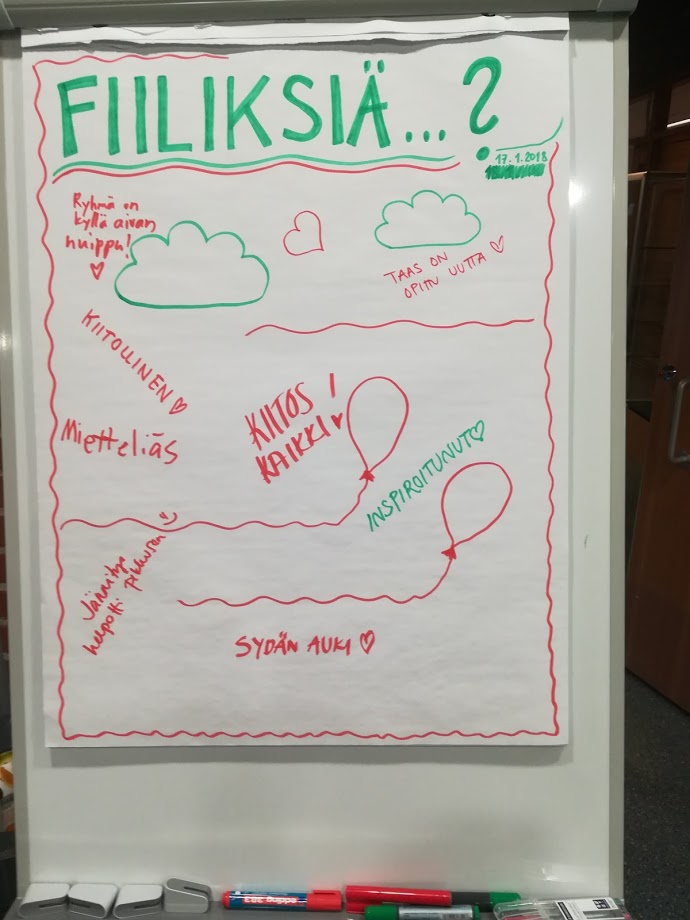 FIILIKSIÄ...?
17.1.2018
Ryhmä on
kyllä aivan
huippu!
TAAS ON
OPITTU UUTTA
KIITOLLINEN
Mietteliäs
KIITOS
KAIKKI!
INSPIROITUNUT
Jännitys
helpotti pikkusen
SYDÄN AUKI
edding 383